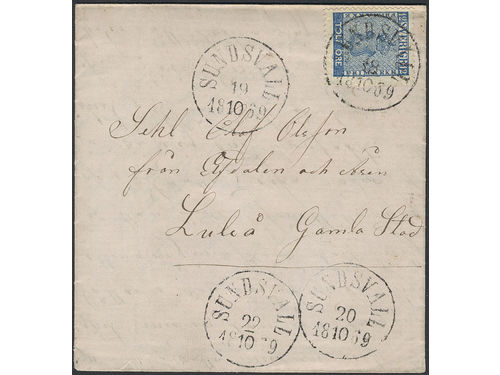 SVERIGE
TOLF ÖRE
SUNDSVALL
18
18 10 69
SUNDSVALL
19
18 10 69
Sehl Olof Olsson
från Elfdalen och Åsen
Luleå Gamla Stad
SUNDSVALL
22
18 10 69
SUNDSVALL
20
18 10 69